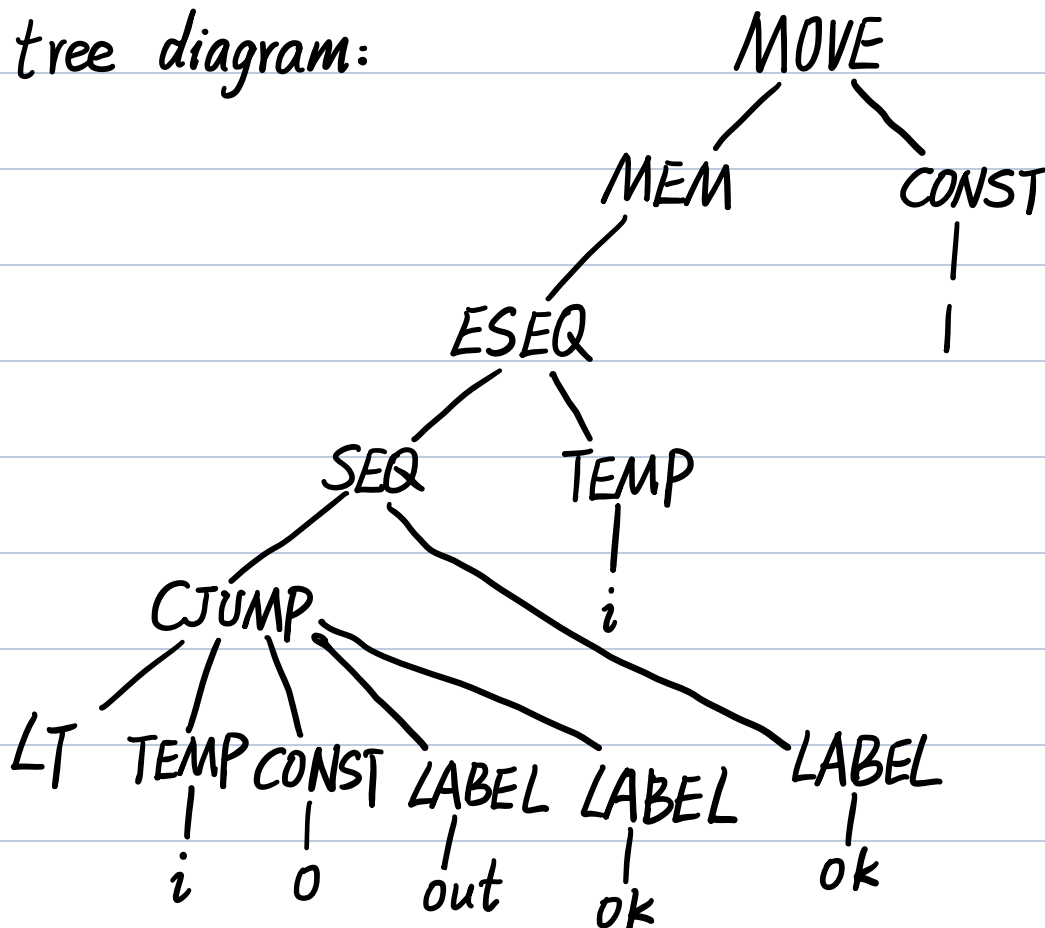 tree diagram:
MOVE
MEM CONST
1
ESEQ
SEQ TEMP
i
CJUMP
LT TEMP CONST LABEL LABEL LABEL
i 0 out ok ok